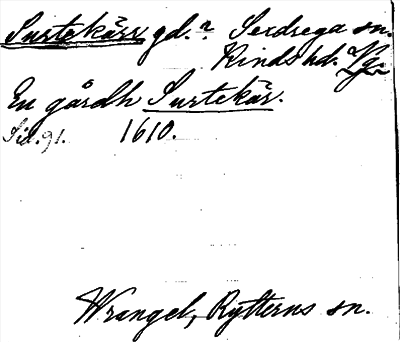 Surtekärr gd. n. Sexdrega sn.
Kinds hd. Vg.
En gårdh Surtekär.
Sid. 91. 1610.
Wrangel, Rytterns sn.